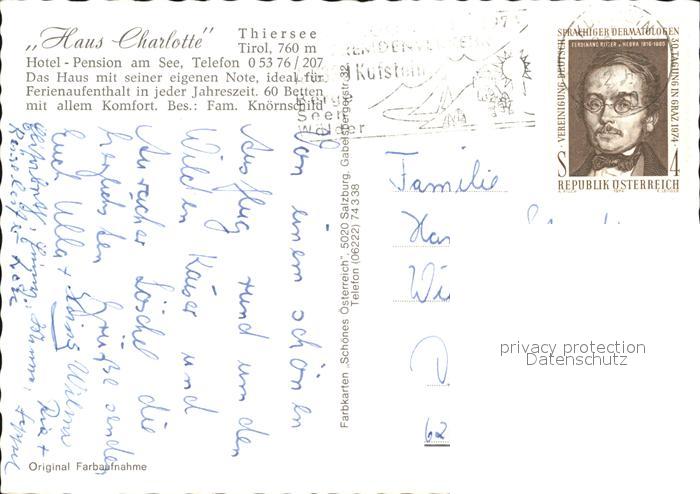 „Haus Charlotte"
Thiersee
Tirol, 760 m
Hotel - Pension am See, Telefon 0 53 76 / 207
Das Haus mit seiner eigenen Note, ideal für
Ferienaufenthalt in jeder Jahreszeit. 60 Betten
mit allem Komfort. Bes.: Fam. Knörnschild
Von einem schönen
Ausflug rund um den
Wilden Kaiser und
Auracher Löschel die
herzlichsten Grüße senden
Euch Ulla +
Wilma
Original Farbaufnahme
Farbkarten „Schönes Österreich", 5020 Salzburg, Gabelsbergerstr. 32
Telefon (06222) 74 3 38
Kufstein
Seen
Wälder
VEREINIGUNG DEUTSCHSPRACHIGER DERMATOLOGEN
30. TAGUNG IN GRAZ 1974
FERDINAND RITTER v. HEBRA 1816-1880
S 4
REPUBLIK ÖSTERREICH
Familie
Ha
Wi
D
62
privacy protection
Datenschutz